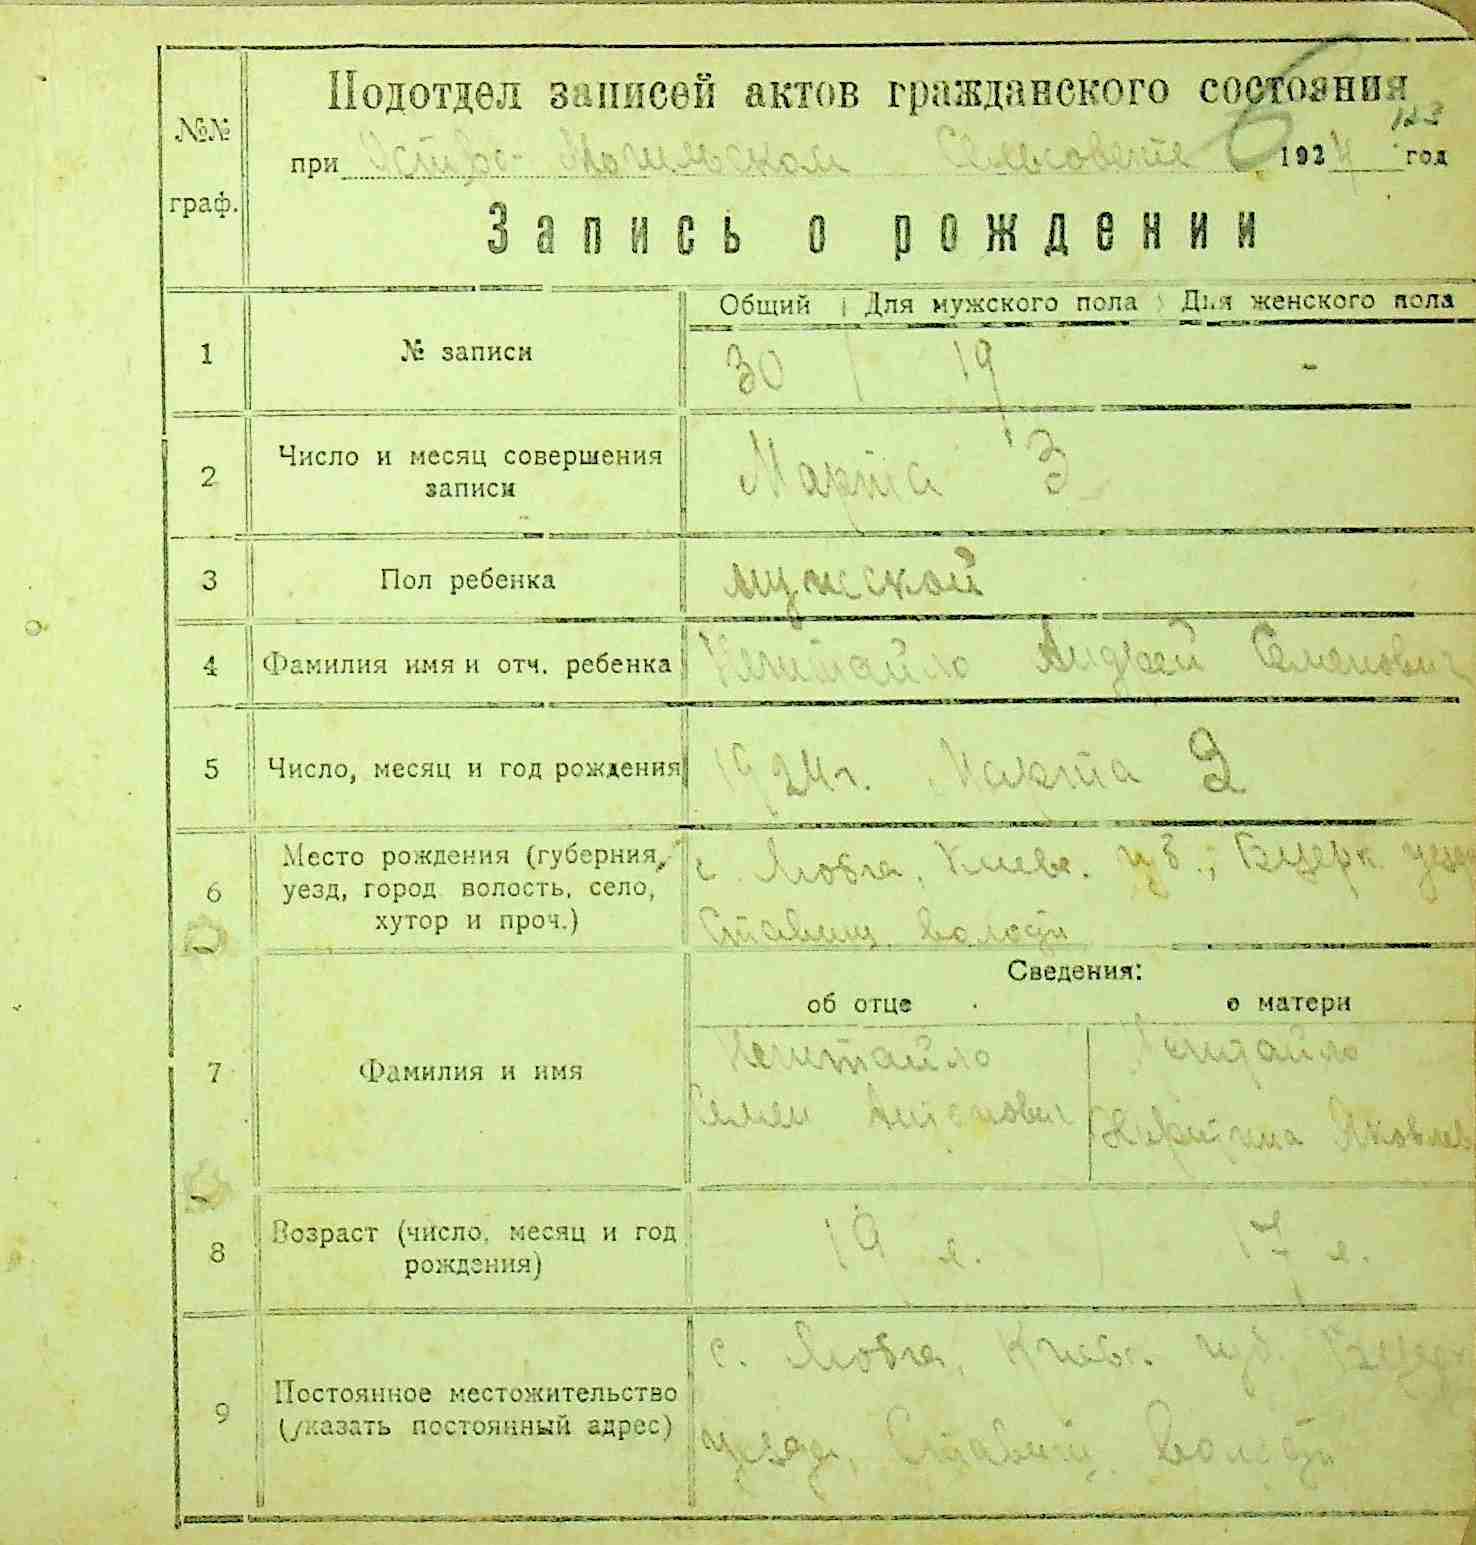 Подотдел записей актов гражданского состояния
№№
6
123
при Остро-Могильском Сельсовете 1924 год
граф.
Запись о рождении
Общий Для мужского пола Для женского пола
1 № записи 30 19 -
2 Число и месяц совершения
записи Марта 3
3 Пол ребенка мужской
4 Фамилия имя и отч. ребенка Андрей Семенович
5 Число, месяц и год рождения 1924 г. Марта 2
6 Место рождения (губерния, с. Киевс. губ.; Бцерк уезд
уезд, город волость, село,
хутор и проч.) Ставищ. волости
Сведения:
об отце о матери
7 Фамилия и имя
Семен Антонович Яковлев
8 Возраст (число, месяц и год
рождения) 19 л. 17 л.
9 Постоянное местожительство с. Киевс. губ. Бцерк
(указать постоянный адрес) уезда, Ставищ. волости